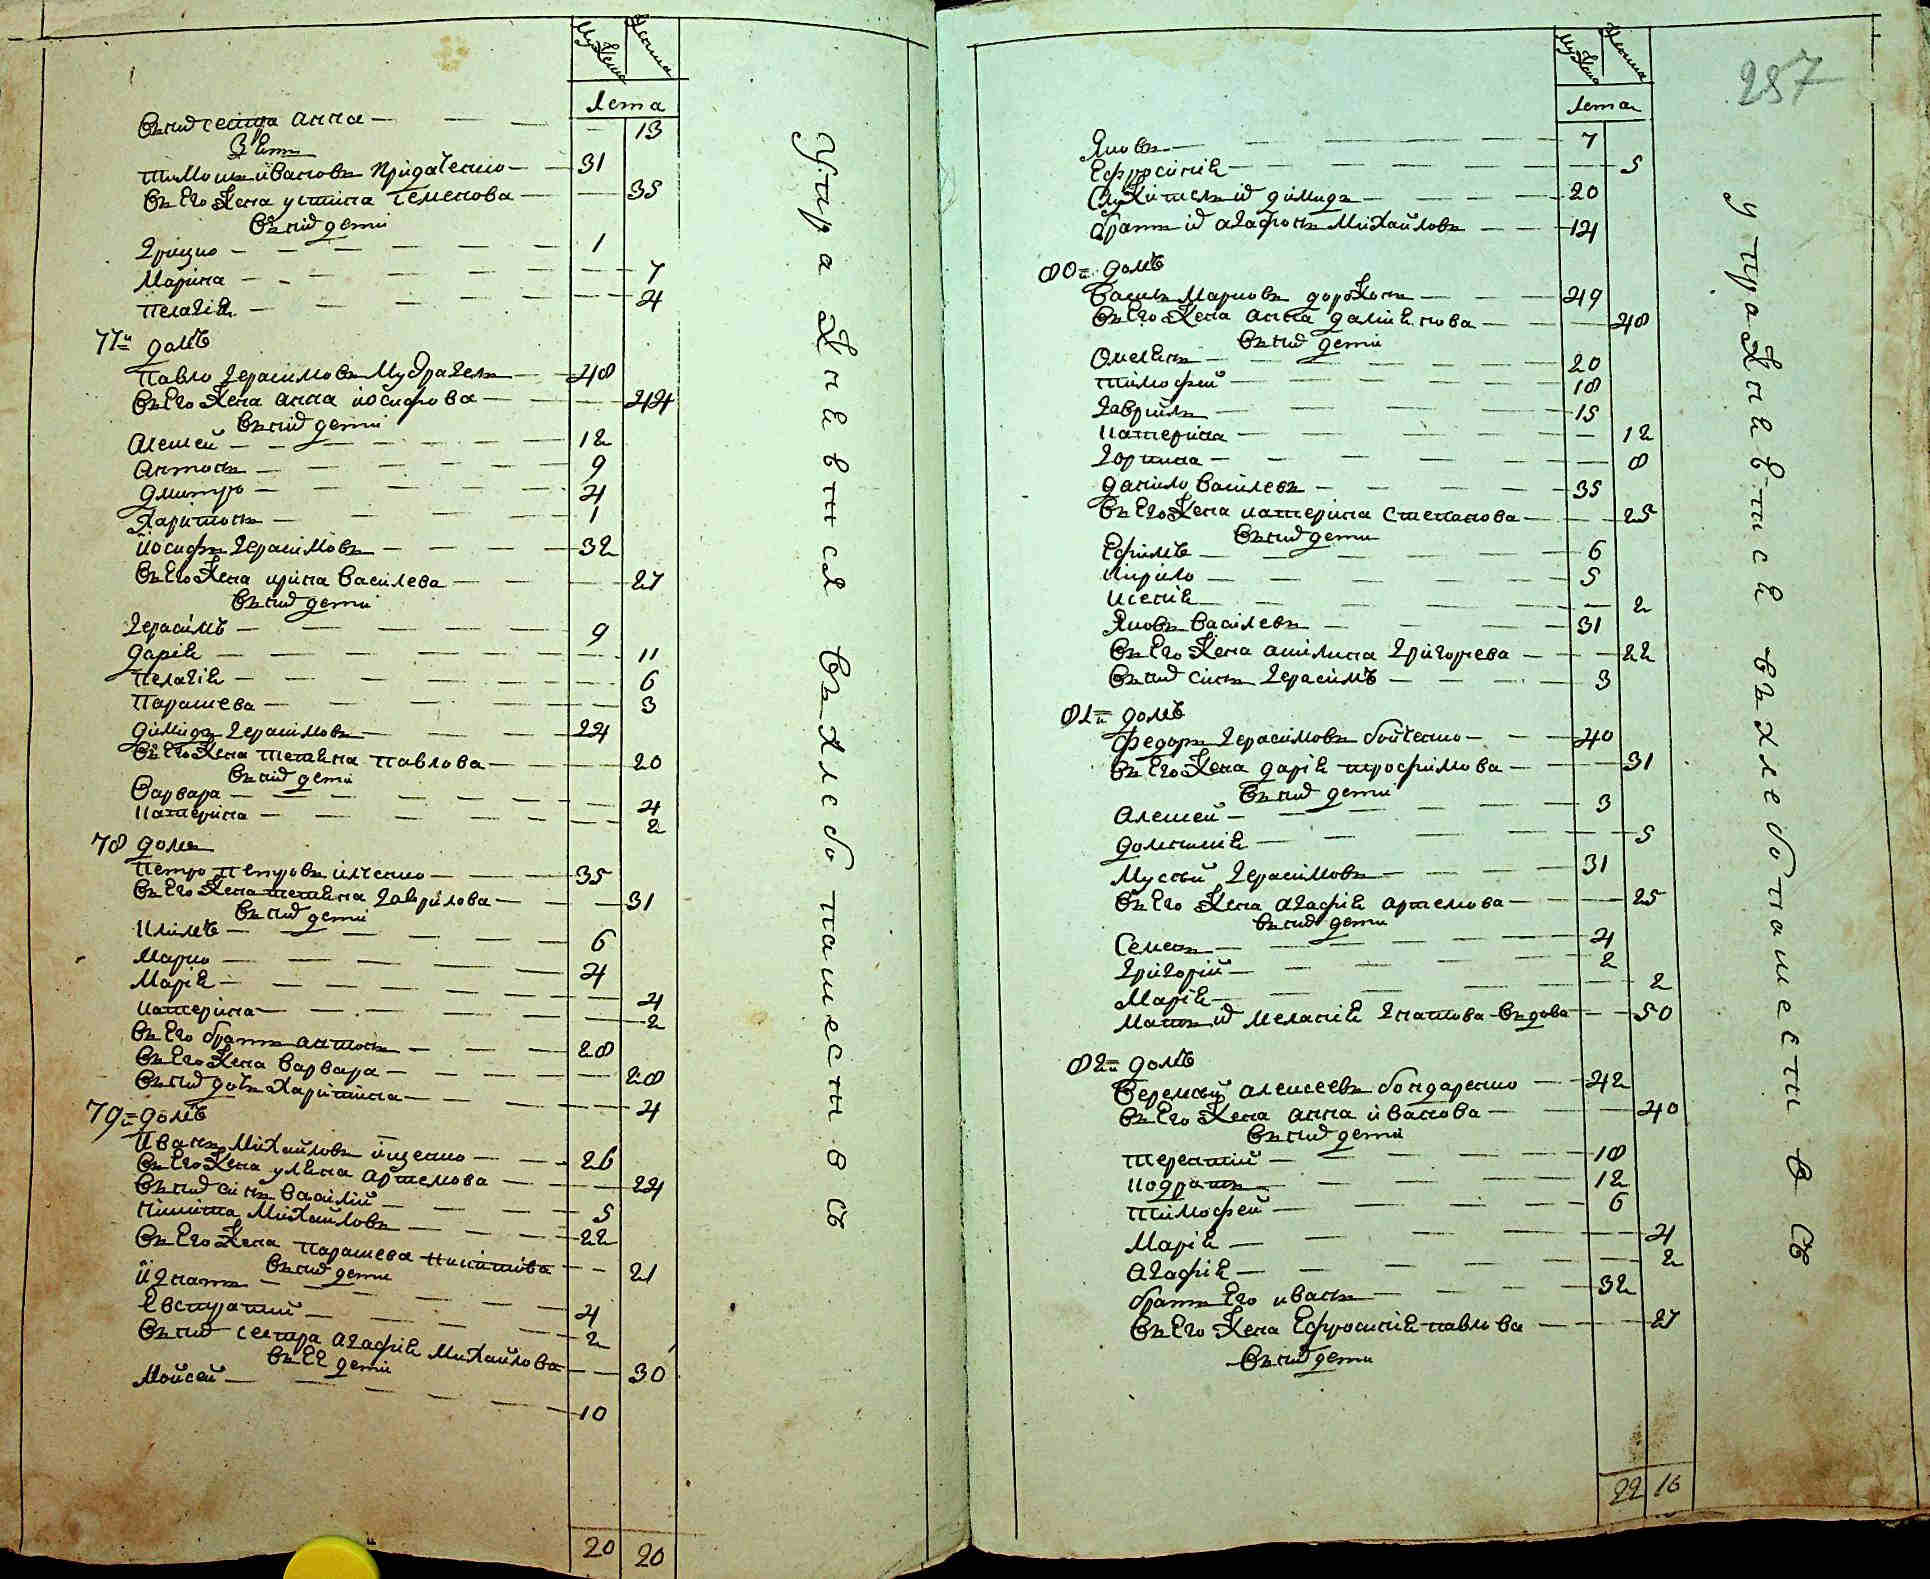 Мужеска Женска
Лета
Вних сестра анна — 13
Зять
тимошъ ивановъ Придаченко — 31
Въ Его жена устина Семенова — 35
Въ них дети
Грицко — 1
Марина — 7
Пелагія — 4
77й домъ
Павло Герасимовъ Мудрагель — 48
Въ Его жена анна иосифова — 44
Въ них дети
Алексей — 12
Антонъ — 9
Дмитро — 4
Харитонъ — 1
йосифъ Герасимовъ — 32
Въ Его жена ирина Василева — 27
Въ них дети
Герасимъ — 9
Дарія — 11
Пелагія — 6
Параскева — 3
Димидъ Герасимовъ — 24
Въ Его жена татіяна павлова — 20
Въ них дети
Варвара — 4
Катерина — 2
78 домъ
Петро Петровъ илченко — 35
Въ Его жена татіяна Гаврилова — 31
Въ них дети
Климъ — 6
Марко — 4
Марія — 4
Катерина — 2
Въ Его братъ антонъ — 28
Въ Его жена Варвара — 28
Въ них дочь Харитина — 4
79й домъ
Иванъ Михайловъ ищенко — 26
Въ Его жена уляна Артемова — 24
Въ них синъ Василий — 5
Никита Михайловъ — 22
Въ Его жена Параскева Никитова — 21
Въ них дети
йгнатъ — 4
Евстратий — 2
Въ них сестра агафія Михайлова — 30
Въ Ее дети
Мойсей — 10
20 20
Упражняется въ хлебопашестново
Мужеска Женска
287
Лета
Яковъ — 7
Ефросиния — 5
Служитель их димидъ — 20
братъ их агафонъ Михайловъ — 14
80й домъ
Василь Марковъ дорожонъ — 49
Въ Его жена анна даміянова — 48
Въ них дети
Омелянъ — 20
тимофей — 18
Гаврийлъ — 15
Катерина — 12
Горпина — 8
данило Василевъ — 35
Въ Его жена катерина степанова — 25
Въ них дети
Ефимъ — 6
Кирило — 5
Ксения — 2
Яковъ Василевъ — 31
Въ Его жена акилина Григорева — 22
Въ них синъ Герасимъ — 3
81й домъ
Федоръ Герасимовъ бойченко — 40
Въ Его жена дарія трофимова — 31
Въ них дети
Алексей — 3
домникия — 5
Мусий Герасимовъ — 31
Въ Его жена агафія артемова — 25
Въ них дети
Семенъ — 4
Григорий — 2
Марія — 2
Мать их мелания Гнатова вдова — 50
82й домъ
Веремий алексеевъ бондаренко — 42
Въ Его жена анна ивановa — 40
Въ них дети
терентий — 18
Кодратъ — 12
тимофей — 6
Марія — 4
Агафія — 2
братъ Его иванъ — 32
Въ Его жена Ефросинія павлова — 27
Въ них дети
22 16
упражняется въ хлебопашестново